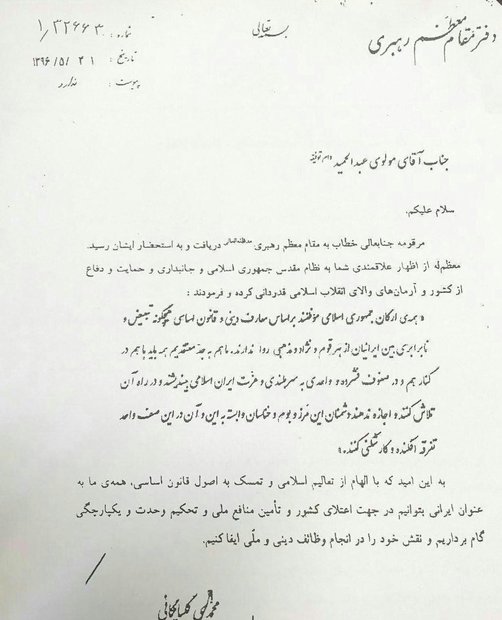 بسمه تعالی
دفتر مقام معظم رهبری
شماره : ۱/۳۲۶۶۳
تاریخ : ۱۳۹۶/۵/۳۱
پیوست : ندارد
جناب آقای مولوی عبدالحمید دام توفیقه
سلام علیکم.
مرقومه جنابعالی خطاب به مقام معظم رهبری مدظله‌العالی دریافت و به استحضار ایشان رسید.
معظم‌له از اظهار علاقمندی شما به نظام مقدس جمهوری اسلامی و جانبداری و حمایت و دفاع
از کشور و آرمان‌های والای انقلاب اسلامی قدردانی کرده و فرمودند :
« همه‌ی ارکان جمهوری اسلامی موظفند براساس معارف دینی و قانون اساسی هیچگونه تبعیض و
نابرابری بین ایرانیان از هر قوم و نژاد و مذهبی روا ندارند. ما هم به جدّ معتقدیم همه باید با هم در
کنار هم و در صفوف فشرده و واحدی به سربلندی و عزت ایران اسلامی بیندیشند و در راه آن
تلاش کنند و اجازه ندهند دشمنان این مرز و بوم و خناسان وابسته به این و آن در این صف واحد
تفرقه افکنده و کارشکنی کنند.»
به این امید که با الهام از تعالیم اسلامی و تمسک به اصول قانون اساسی، همه‌ی ما به
عنوان ایرانی بتوانیم در جهت اعتلای کشور و تأمین منافع ملی و تحکیم وحدت و یکپارچگی
گام برداریم و نقش خود را در انجام وظائف دینی و ملّی ایفا کنیم.
محمدی گلپایگانی